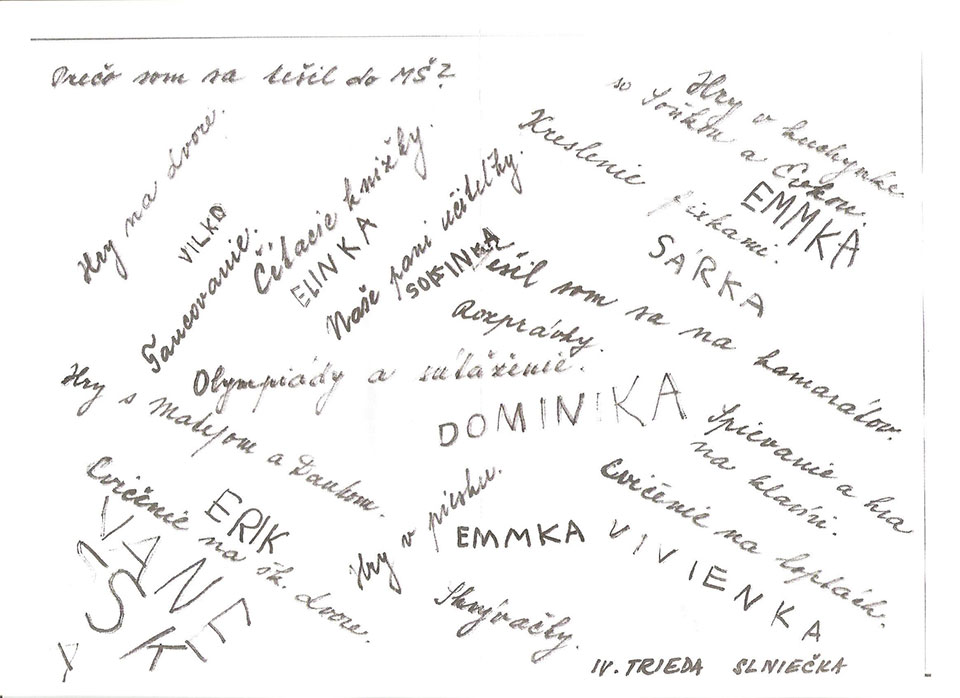 Prečo som sa tešil do MŠ?
Hry na dvore.
VILKO
Tancovanie.
Čítacie knižky.
ELINKA
Naše pani učiteľky.
SOFINKA
Kreslenie fixkami.
SÁRKA
Hry v kuchynke
so Soňkou a
EMMKA
Tešil som sa na kamarátov.
Rozprávky.
Olympiády a súťaženie.
DOMINIKA
Hry s Matejom a Dankom.
Cvičenie na šk. dvore.
ERIK
VANE
SK
Hry v piesku.
EMMKA
Skrývačky.
Spievanie a hra
na klavíri.
Cvičenie na loptách.
VIVIENKA
IV. TRIEDA SLNIEČKA